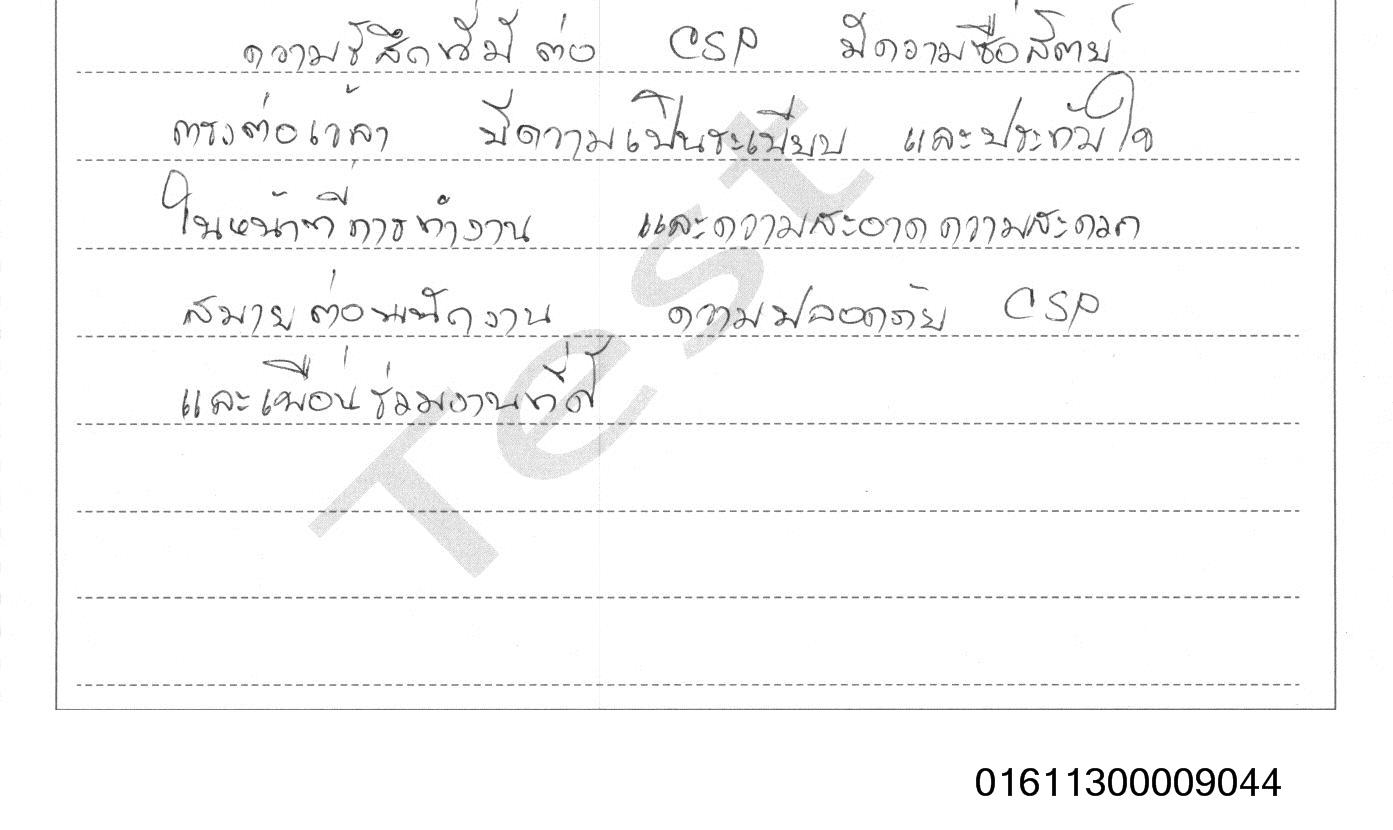 ความรู้สึกที่มีต่อ CSP มีความซื่อสัตย์
ตรงต่อเวลา มีความเป็นระเบียบ และประทับใจ
ในหน้าที่การทำงาน และความสะอาด ความสะดวก
สบายต่อพนักงาน ความปลอดภัย CSP
และเพื่อนร่วมงานที่ดี
Test
01611300009044